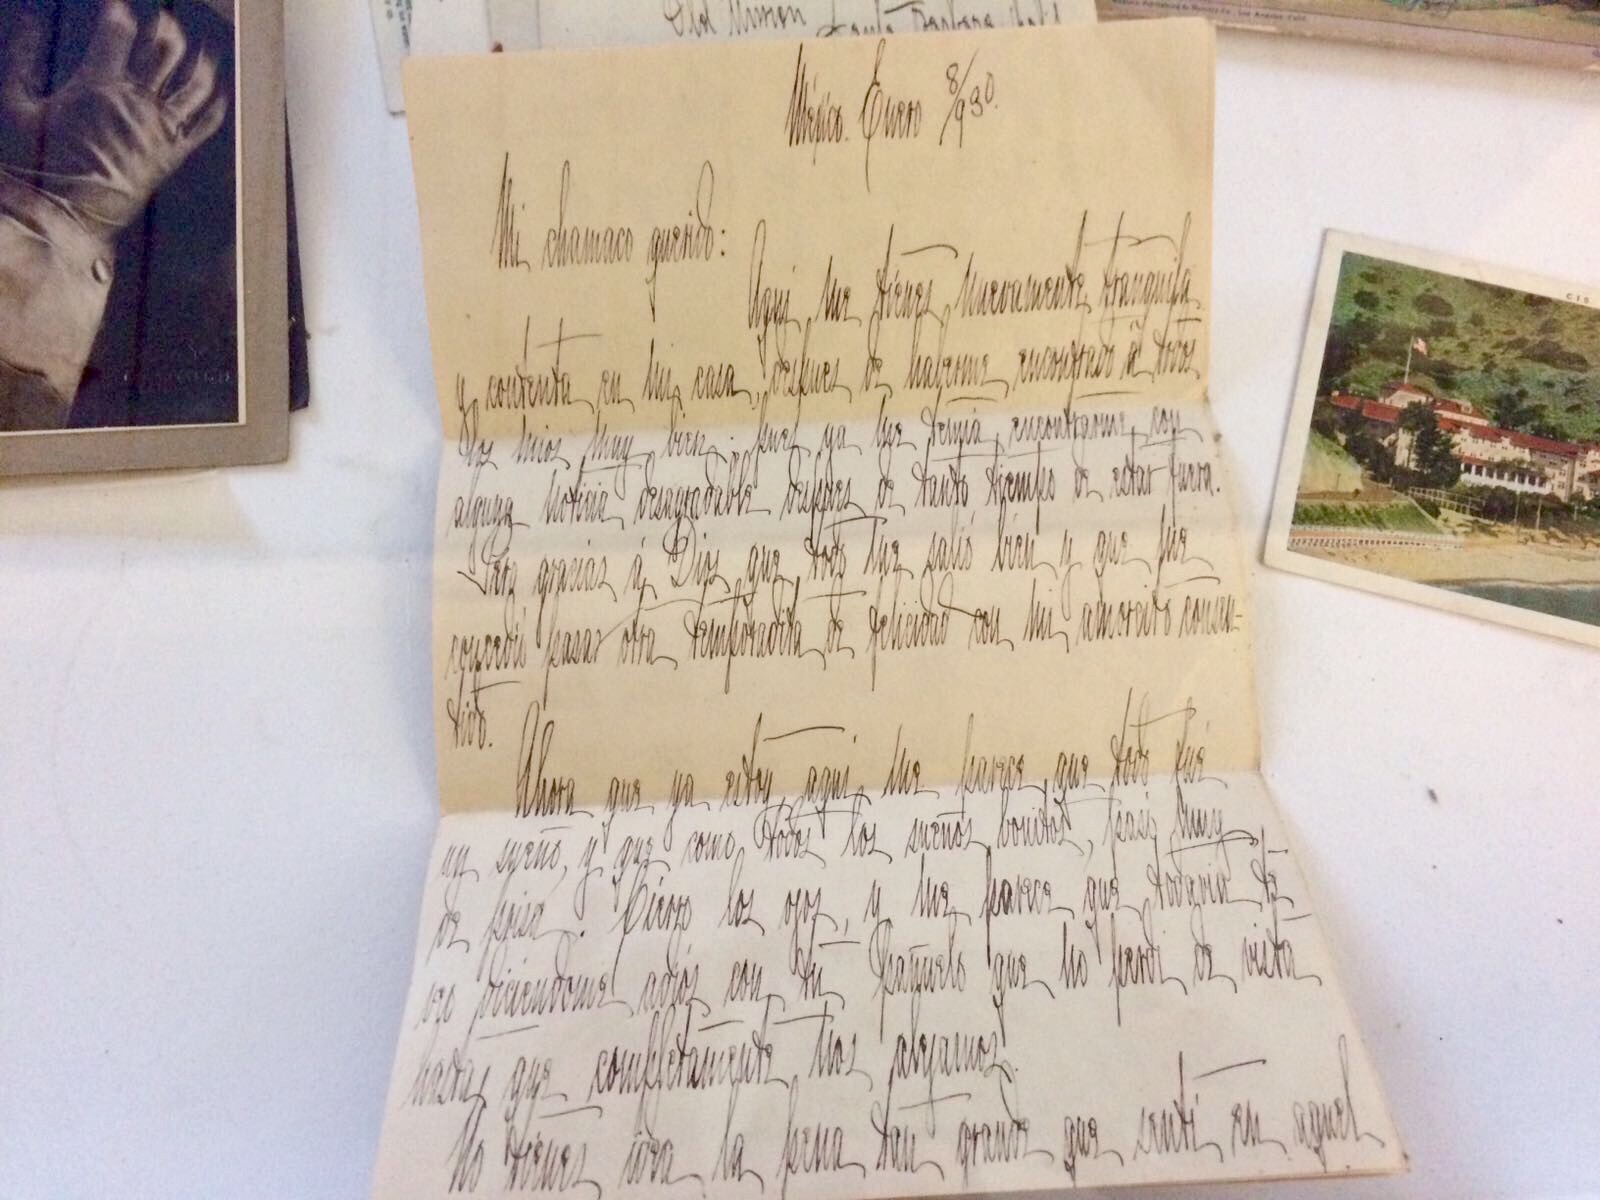 Old Mission Santa Barbara Calif
México. Enero 8/930.
Mi chamaco querido:
Aqui me tienes nuevamente tranquila
y contenta en mi casa, despues de haberme encontrado á todos
los mios muy bien, pues ya me temia encontrarme con
alguna noticia desagradable despues de tanto tiempo de estar fuera.
Pero gracias á Dios que todo me salió bien y que me
concedió pasar otra temporadita de felicidad con mi amorcito consen-
tido.
Ahora que ya estoy aqui, me parece que todo fué
un sueño, y que como todos los sueños bonitos, pasó muy
de prisa. Cierro los ojos, y me parece que todavia te
veo diciendome adiós con tu pañuelo que no perdí de vista
hasta que completamente nos alejamos.
No tienes idea la pena tan grande que sentí en aquel
CIS